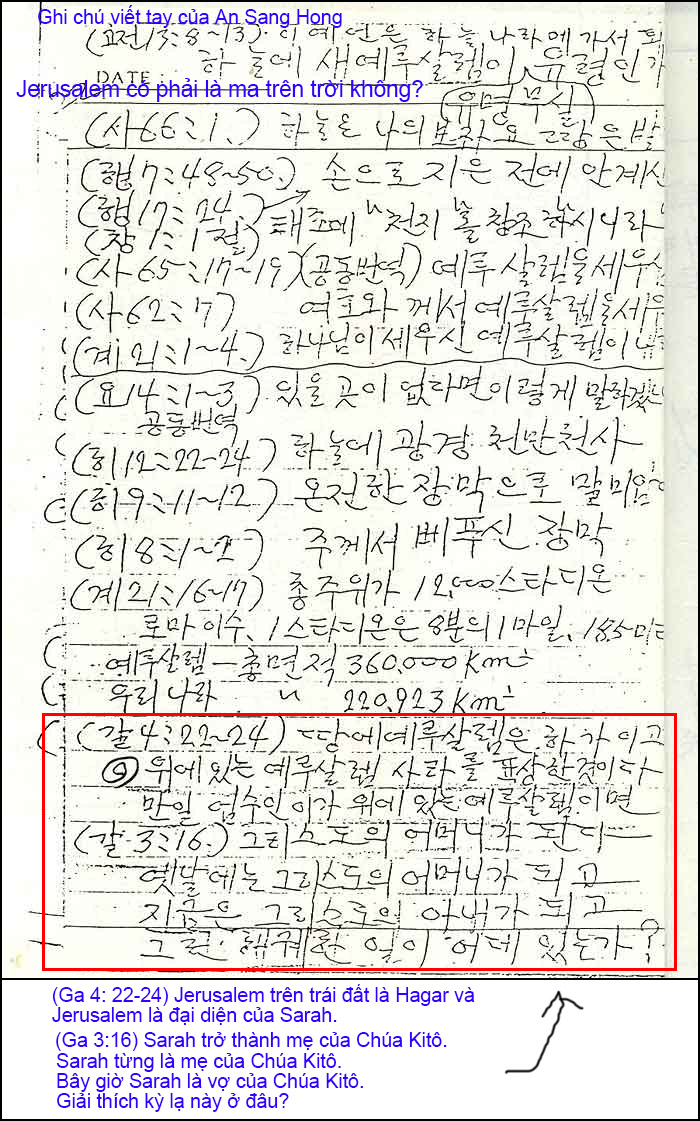 Ghi chú viết tay của An Sang Hong
(고전13:8~13). 이 예언은 하늘 나라에 가서 되
하늘에 새예루살렘이 유령인가
DATE :
Jerusalem có phải là ma trên trời không?
유명무실
(사66:1.) 하늘은 나의 보좌요 땅은 발
(행7:48~50.) 손으로 지은 전에 안계신
(행17:24.)
(창1:1절) 태초에 "천지"를 창조하시니라
(사65:17~19)(공동번역) 예루살렘을 세우신
(사62:7) 여호와께서 예루살렘을 세우
(계21:1~4.) 하나님이 세우신 예루살렘이 내
(요14:1~3) 있을 곳이 없다면 이렇게 말하겠느
공동번역
(히12:22-24) 하늘에 광경 천만천사
(히9:11~12) 온전한 장막으로 말미암
(히8:1~2) 주께서 베푸신 장막
(계21:16~17) 총주위가 12,000스타디온
로마 이수, 1스타디온은 8분의 1마일, 185미터
예루살렘 — 총면적 360,000km²
우리나라 〃 220,923km²
(갈4:22~24) 땅에 예루살렘은 하가이고
위에 있는 예루살렘 사라를 표상한것이다
만일 엄수인이가 위에 있는 예루살렘이면
(갈3:16.) 그리스도의 어머니가 된다
옛날에는 그리스도의 어머니가 되고
지금은 그리스도의 아내가 되고
그런 해괴한 일이 어데 있는가?
(Ga 4: 22-24) Jerusalem trên trái đất là Hagar và
Jerusalem là đại diện của Sarah.
(Ga 3:16) Sarah trở thành mẹ của Chúa Kitô.
Sarah từng là mẹ của Chúa Kitô.
Bây giờ Sarah là vợ của Chúa Kitô.
Giải thích kỳ lạ này ở đâu?